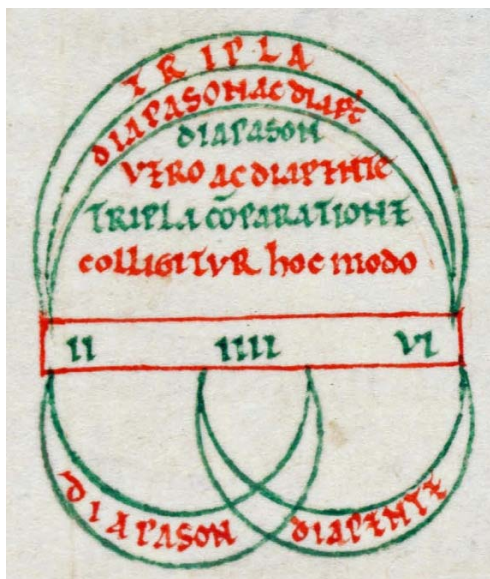 TRIPLA
DIAPASON AC DIAPĒ
DIAPASON
VERO AC DIAPENTE
TRIPLA CŌPARATIONE
COLLIGITVR hoc modo
II IIII VI
DIAPASON DIAPENTE